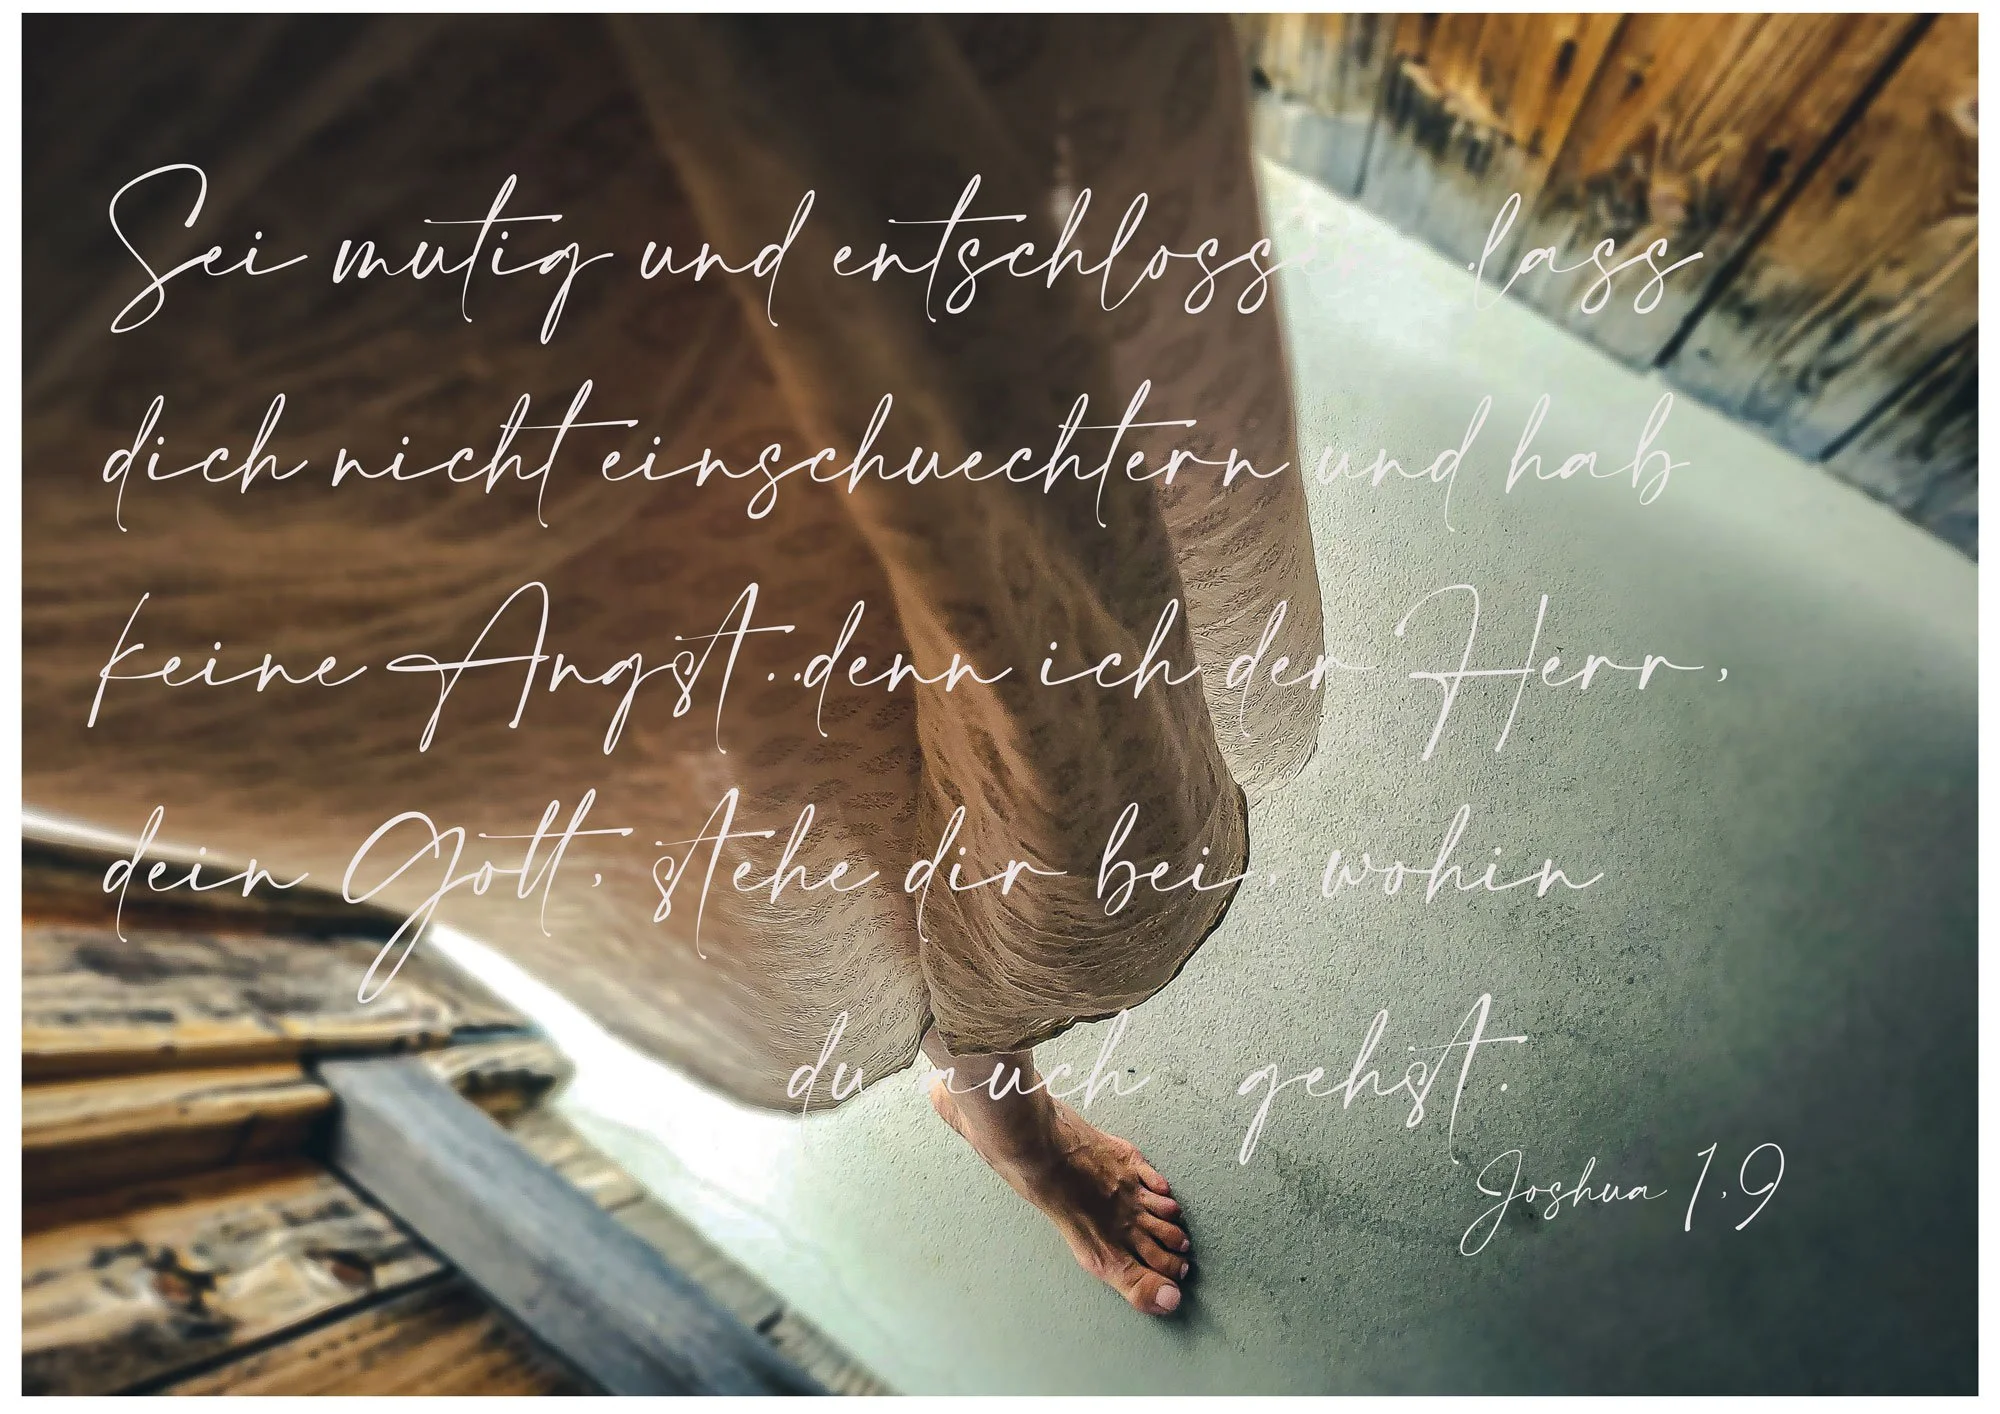 Sei mutig und entschlossen .lass
dich nicht einschuechtern und hab
keine Angst..denn ich der Herr,
dein Gott, stehe dir bei, wohin
du auch gehst.
Joshua 1,9